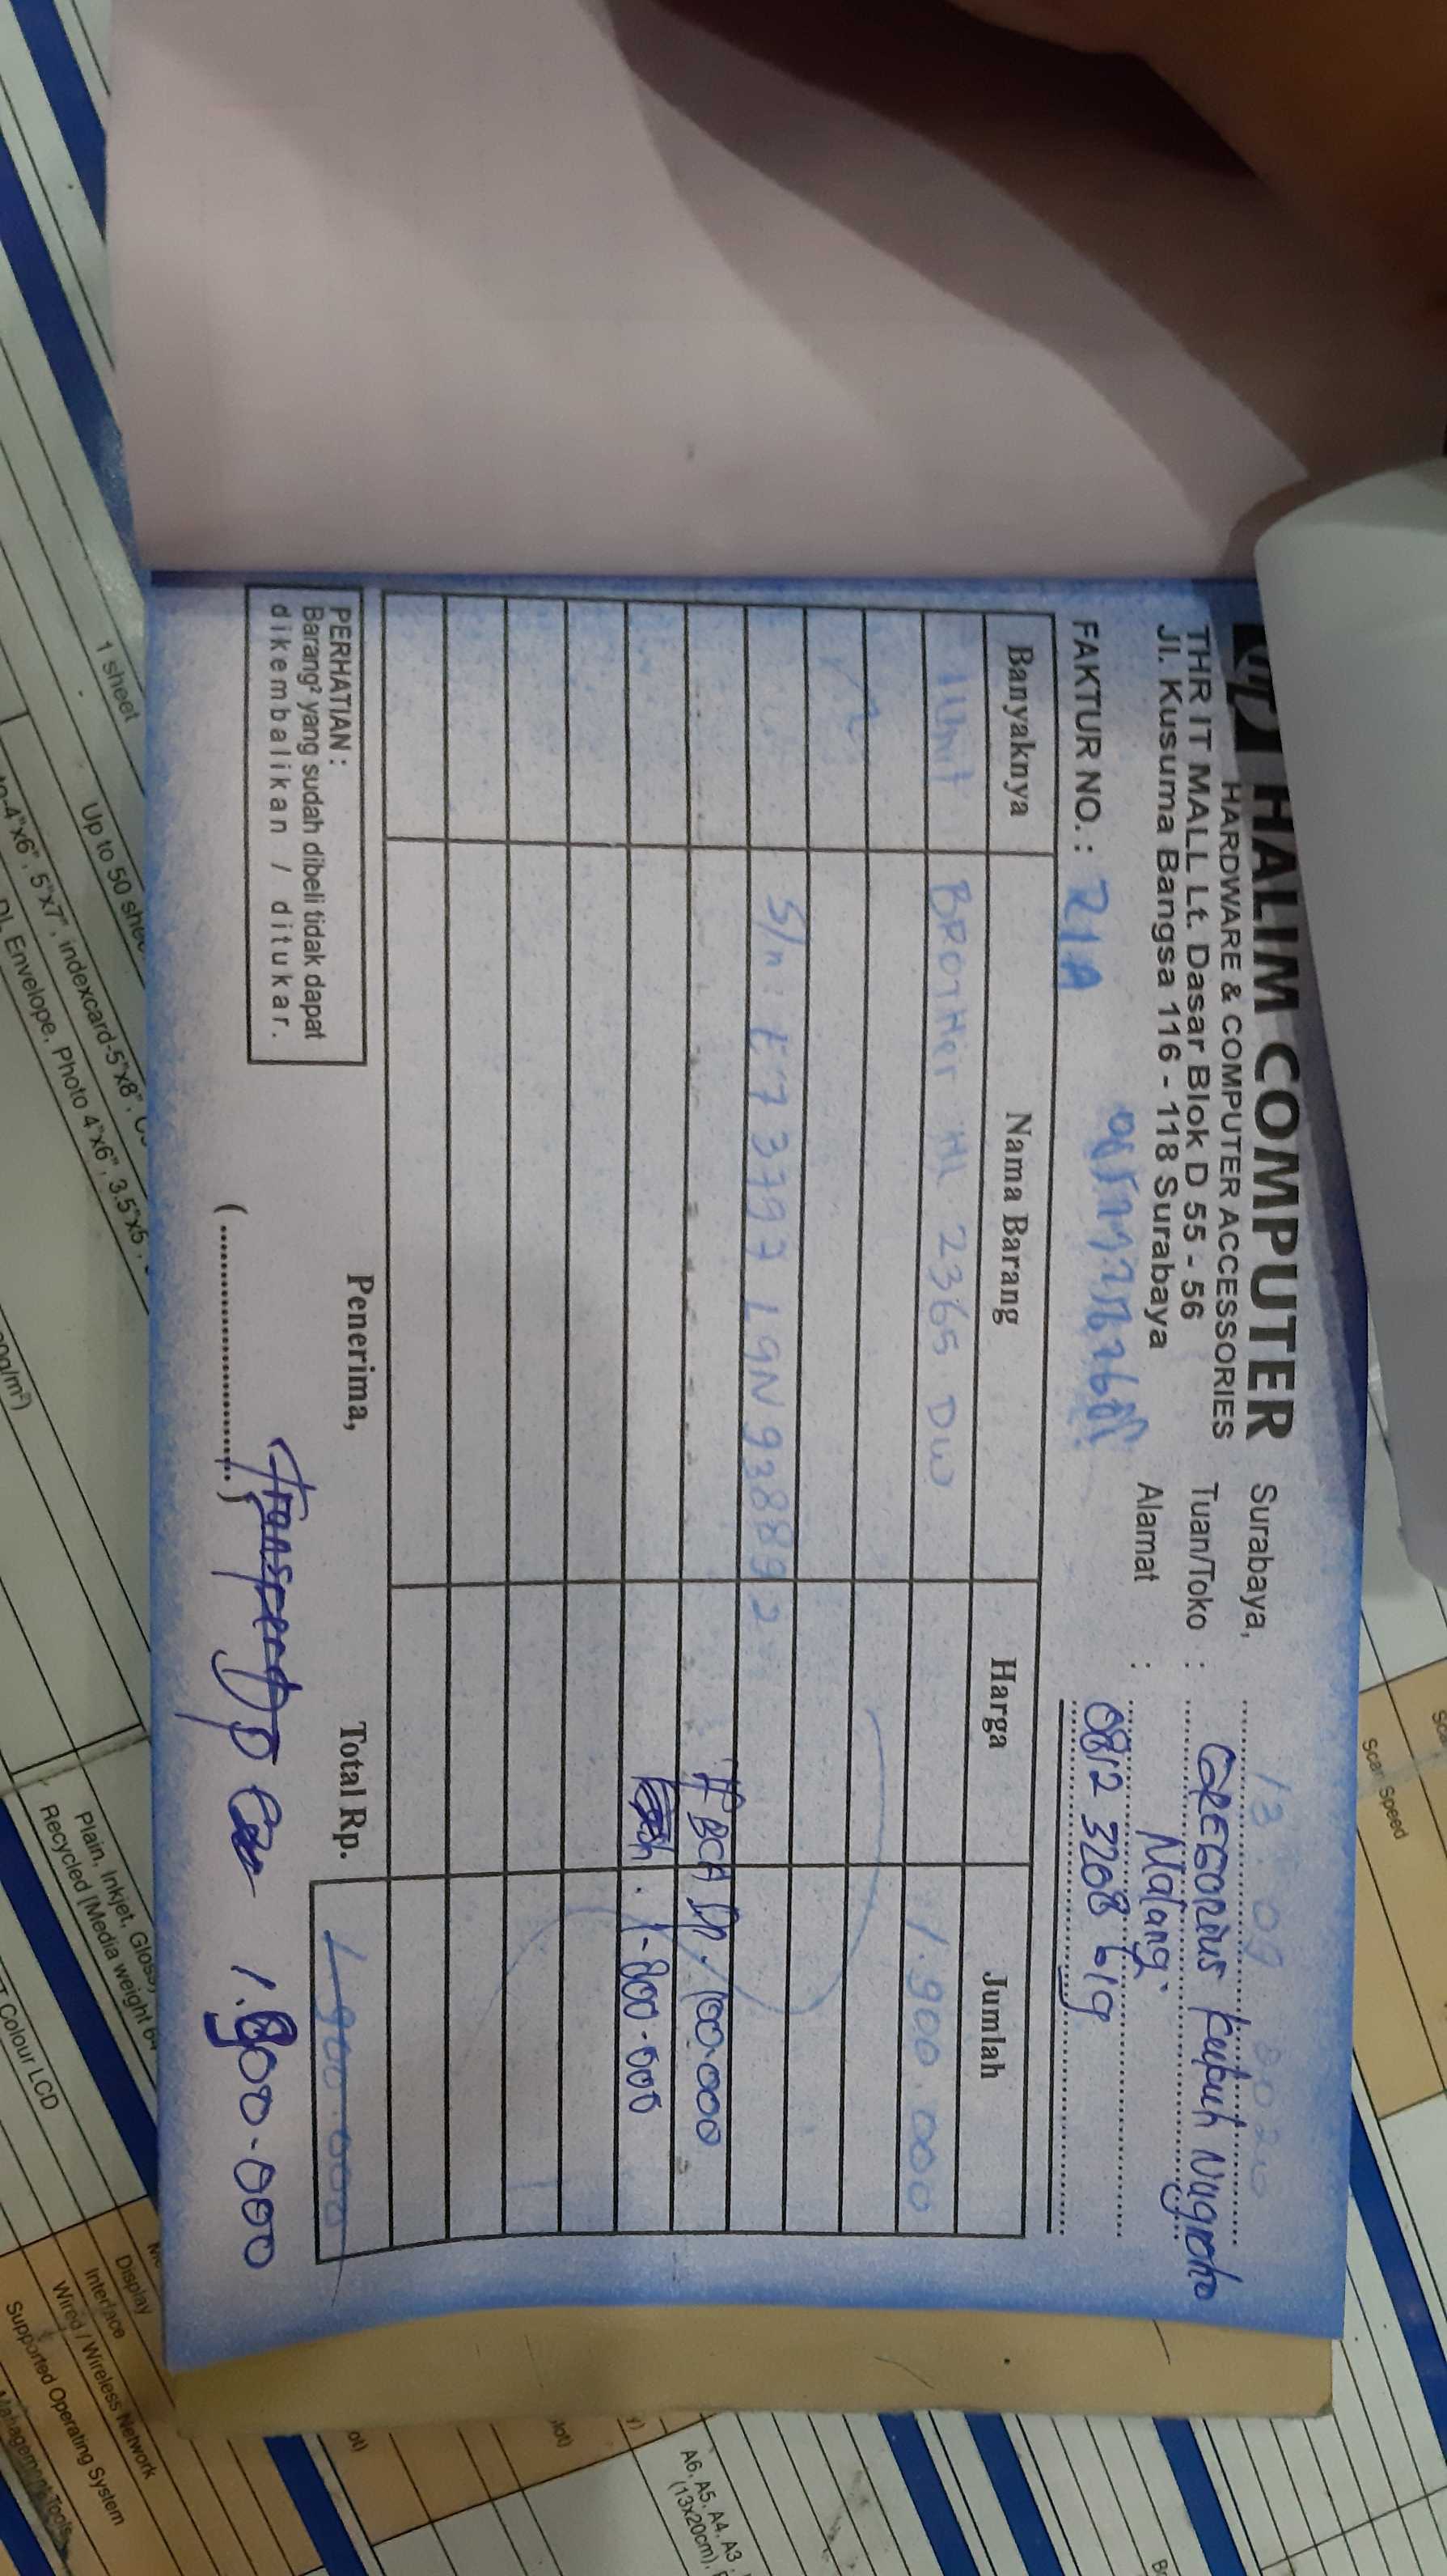 HALIM COMPUTER
HARDWARE & COMPUTER ACCESSORIES
THR IT MALL Lt. Dasar Blok D 55 - 56
Jl. Kusuma Bangsa 116 - 118 Surabaya
Surabaya, 13 . 09 2020
Tuan/Toko : GREGORIUS Nugroho
Alamat : Malang
0812 3208 619
FAKTUR NO. : 21A
Banyaknya Nama Barang Harga Jumlah
1 Unit BROTHER HL 2365 DW 1.900.000
S/n : E73797 L9N938892
BCA 100.000
1.800.000
PERHATIAN :
Barang² yang sudah dibeli tidak dapat
dikembalikan / ditukar.
Penerima,
Total Rp. 1.900.000
1.800.000
1 sheet
Up to 50
5"x7", indexcard-5"x8",
Envelope, Photo 4"x6", 3.5"x5",
Plain, Inkjet, Glossy
Recycled (Media weight
Colour LCD
Display
Interface
Wired / Wireless Network
Supported Operating System
Management Tools
A6, A5, A4, A3
(13x20cm),
Scan Speed